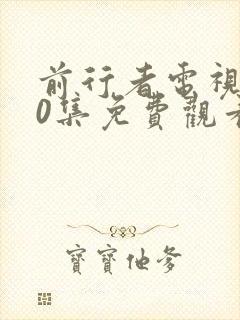 前行者電視
0集免費觀看
寶寶他爹